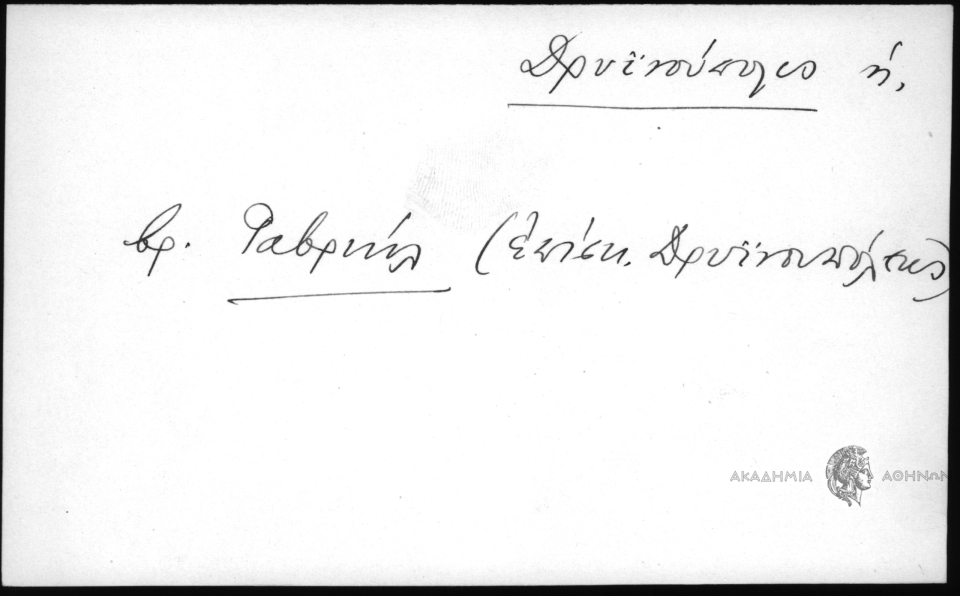 Δρυϊνούπολις ἡ,
βρ. Γαβριήλ (ἐπίσκ. Δρυϊνουπόλεως)
ΑΚΑΔΗΜΙΑ ΑΘΗΝΩΝ